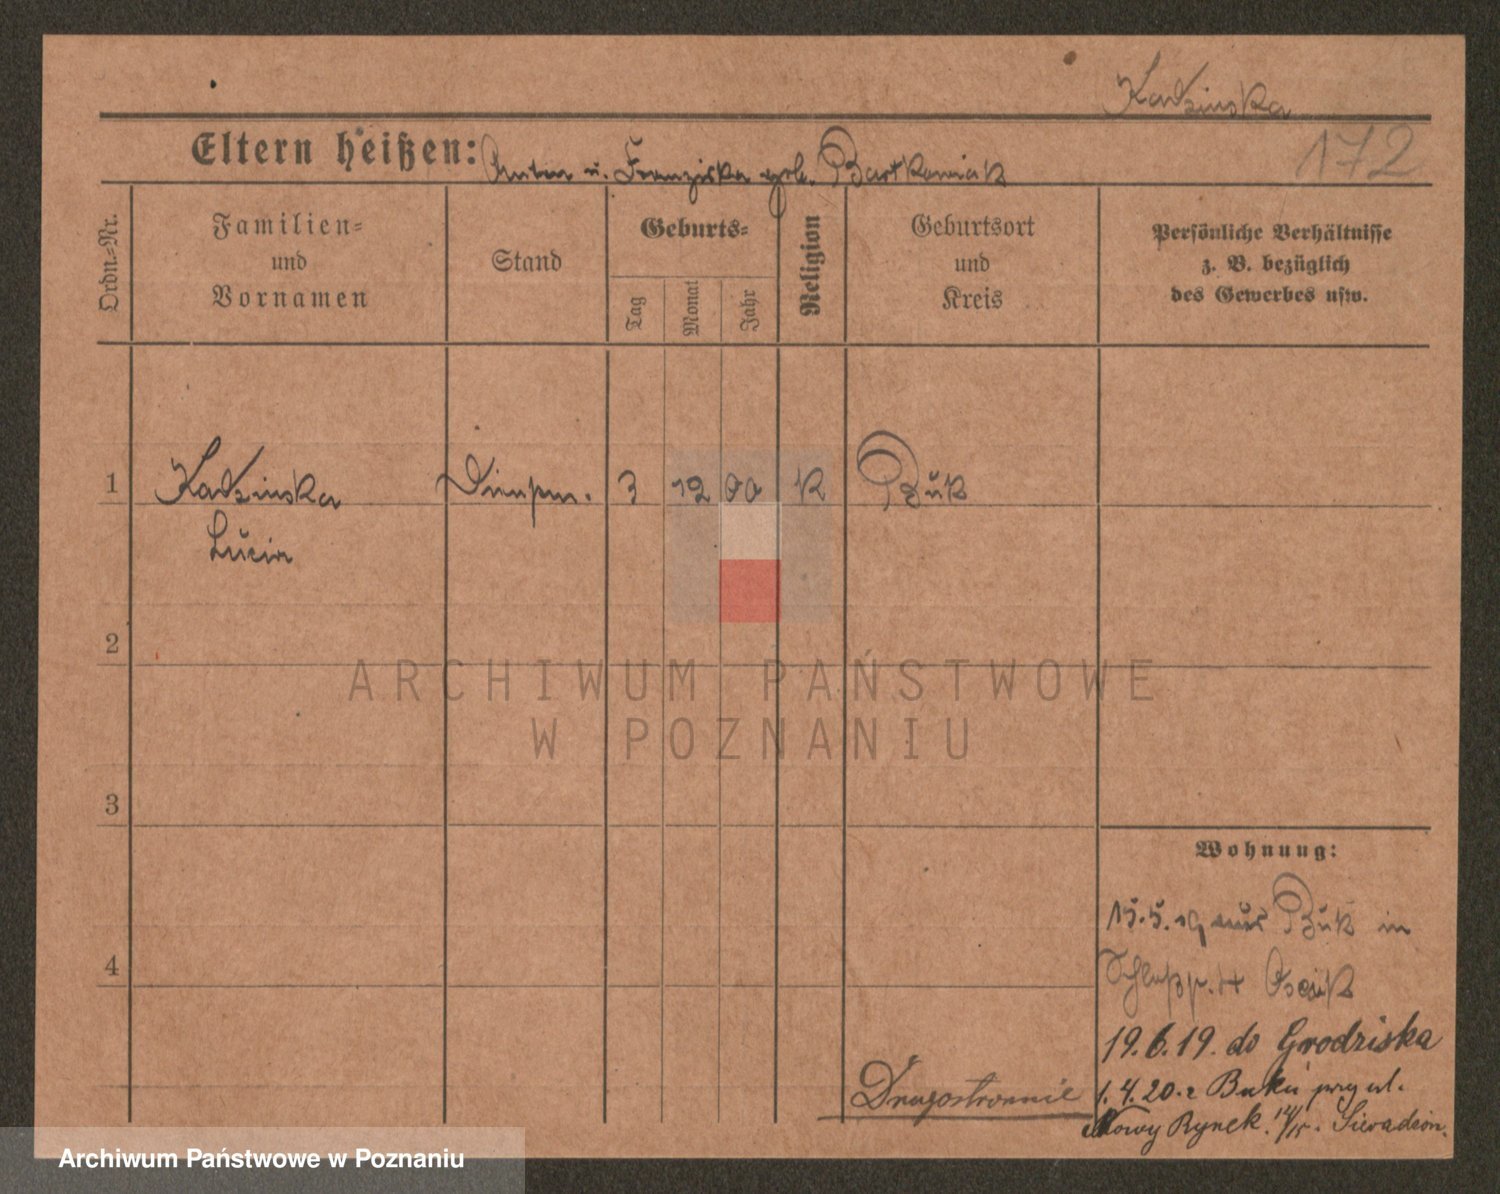 Kadzinska
172
Eltern heißen: Anton u. Franziska geb. Bartkowiak
Ordn.-Nr.
Familien-
und
Vornamen
Stand
Geburts-
Tag
Monat
Jahr
Religion
Geburtsort
und
Kreis
Persönliche Verhältnisse
z. B. bezüglich
des Gewerbes usw.
1 Kadzinska 3 12 00 K Buk
Lucia
2
ARCHIWUM PAŃSTWOWE
W POZNANIU
3
Wohnung:
15.5.19 aus Buk in
4
19.6.19. do Grodziska
Drugostronnie
1.4.20. z Buku przy ul.
Nowy Rynek 14/15.
Archiwum Państwowe w Poznaniu